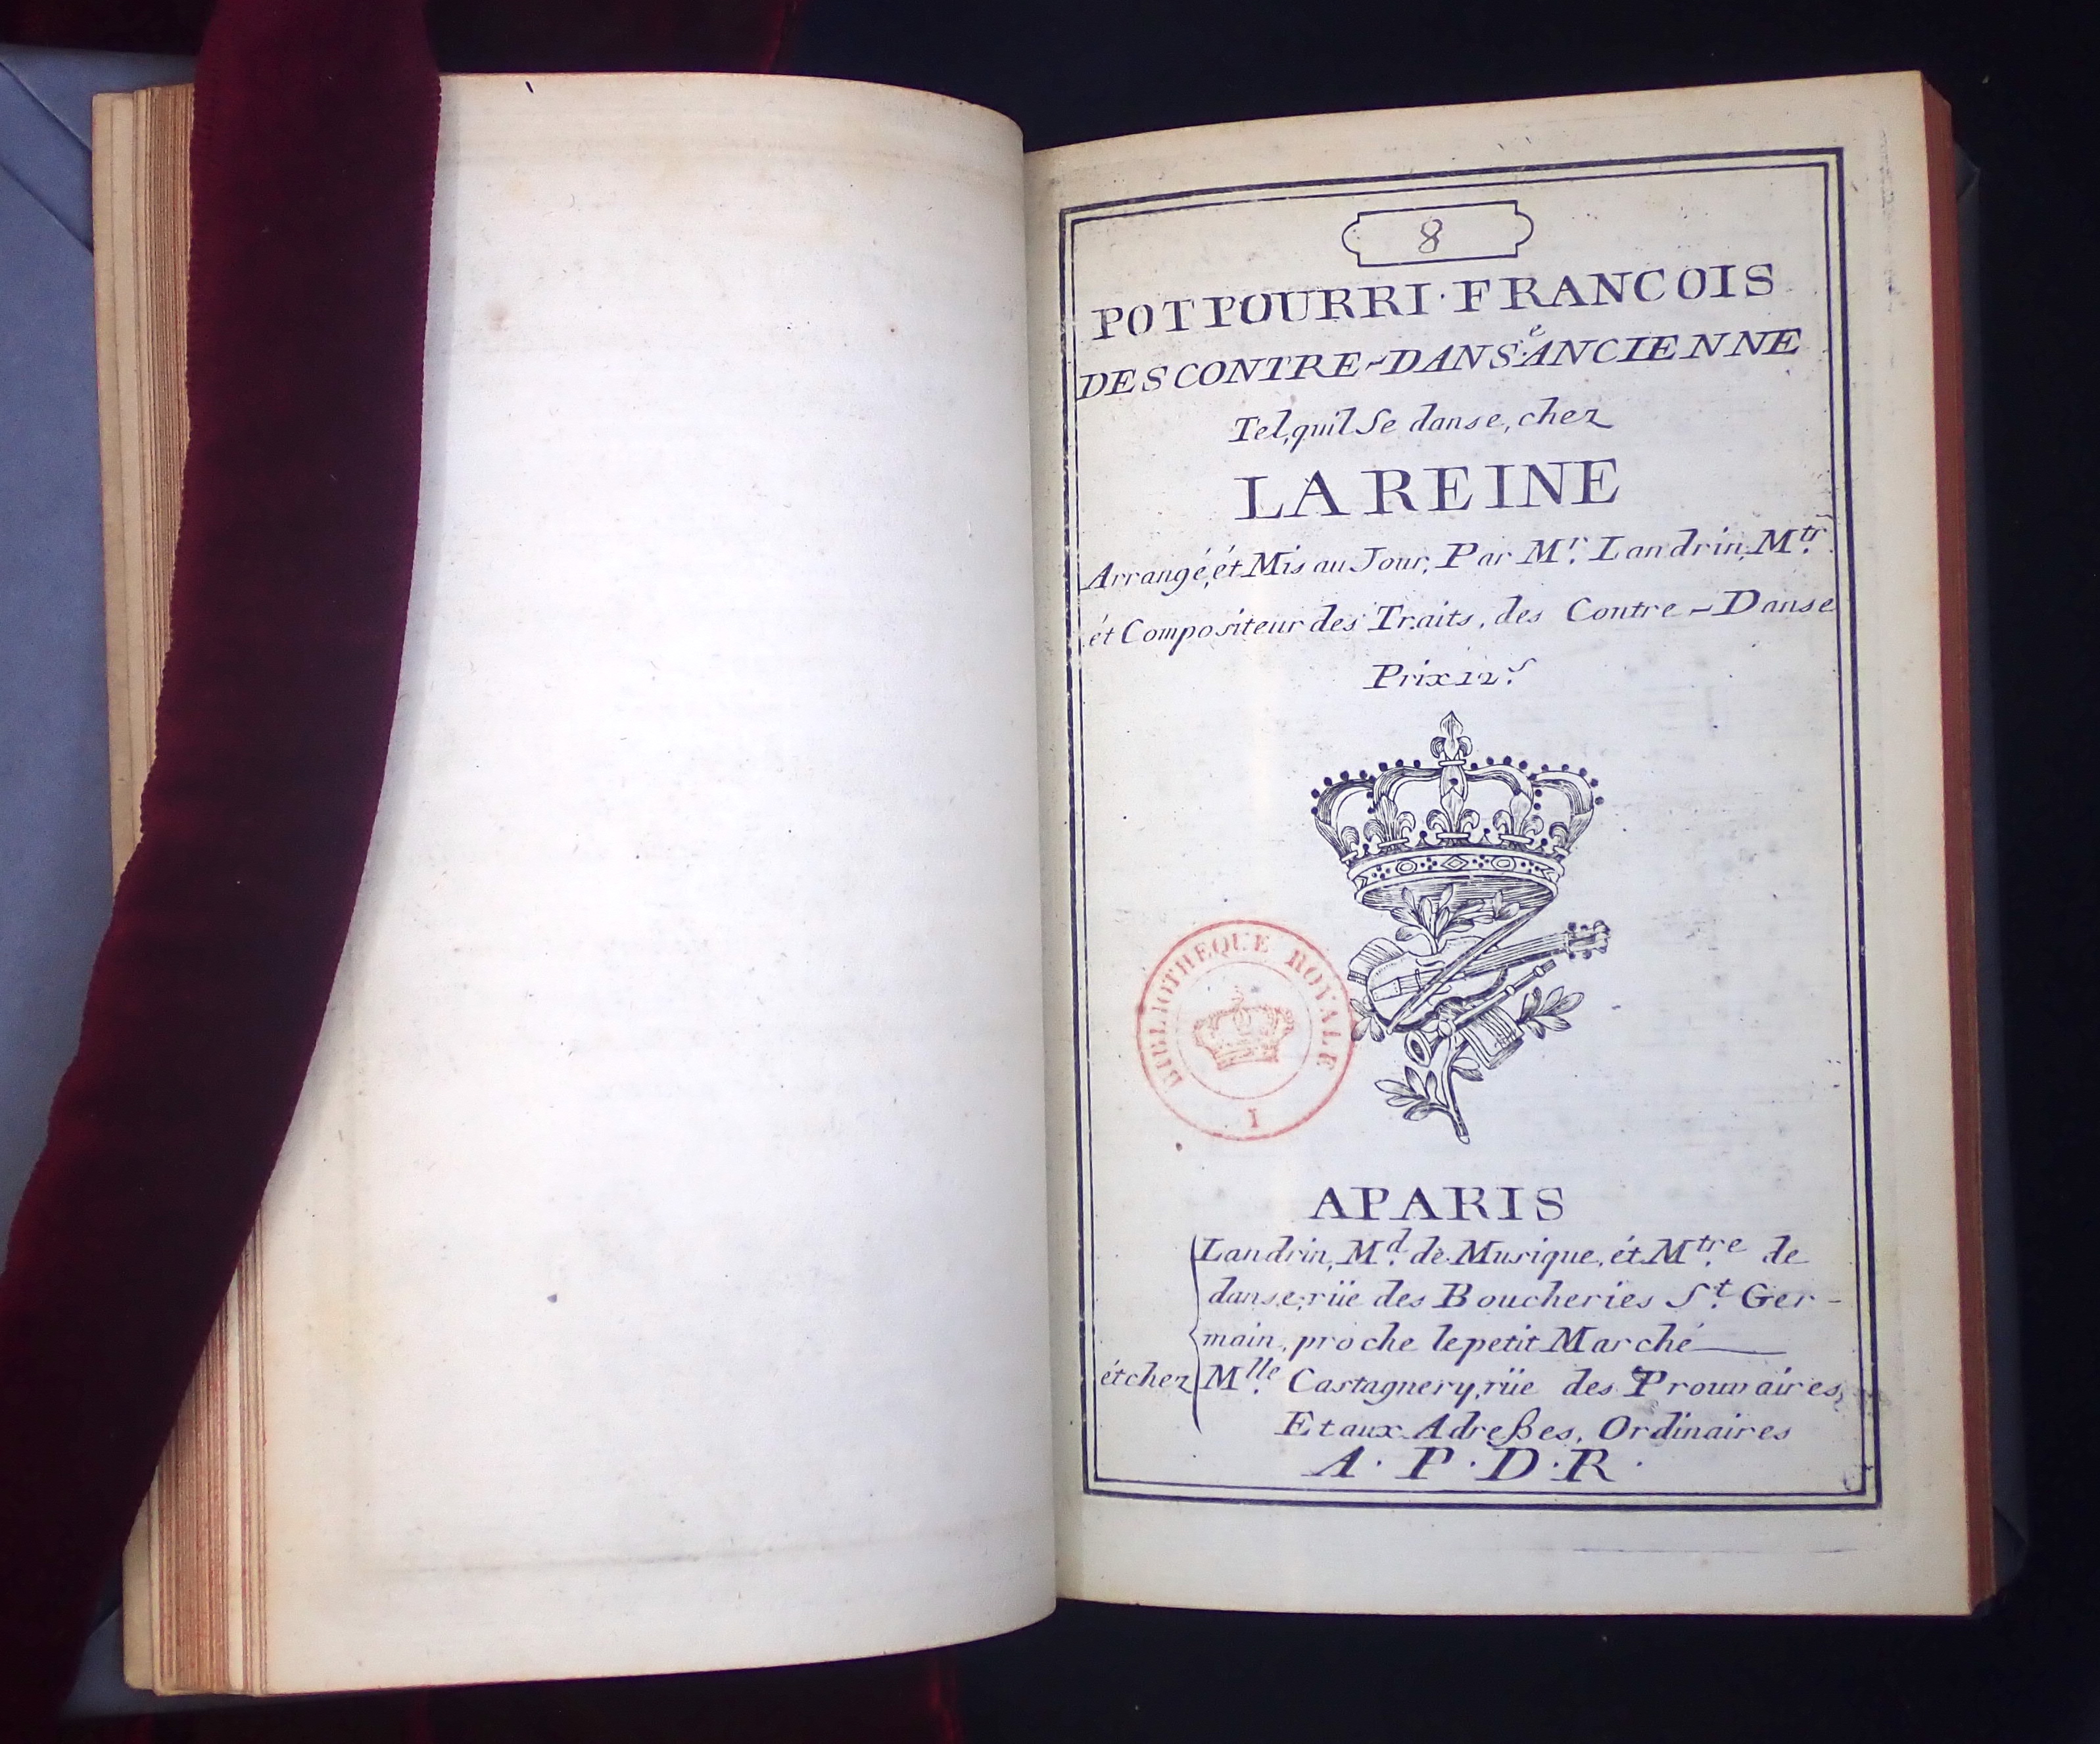 8
POTPOURRI·FRANCOIS
DES CONTRE-DANSe ANCIENNE
Tel, quil Se danse, chez
LA REINE
Arrangé, ét Mis au Jour, Par Mr. Landrin, Mtr.
ét Compositeur des Traits, des Contre-Danse
Prix 12.s
BIBLIOTHEQUE ROYALE
I
A PARIS
Landrin, Md. de Musique, ét Mtre. de
danse, rüe des Boucheries St. Ger-
main, proche le petit Marché
ét chez Mlle. Castagnery, rüe des Prouvaires,
Et aux Adreßes, Ordinaires
A·P·D·R·